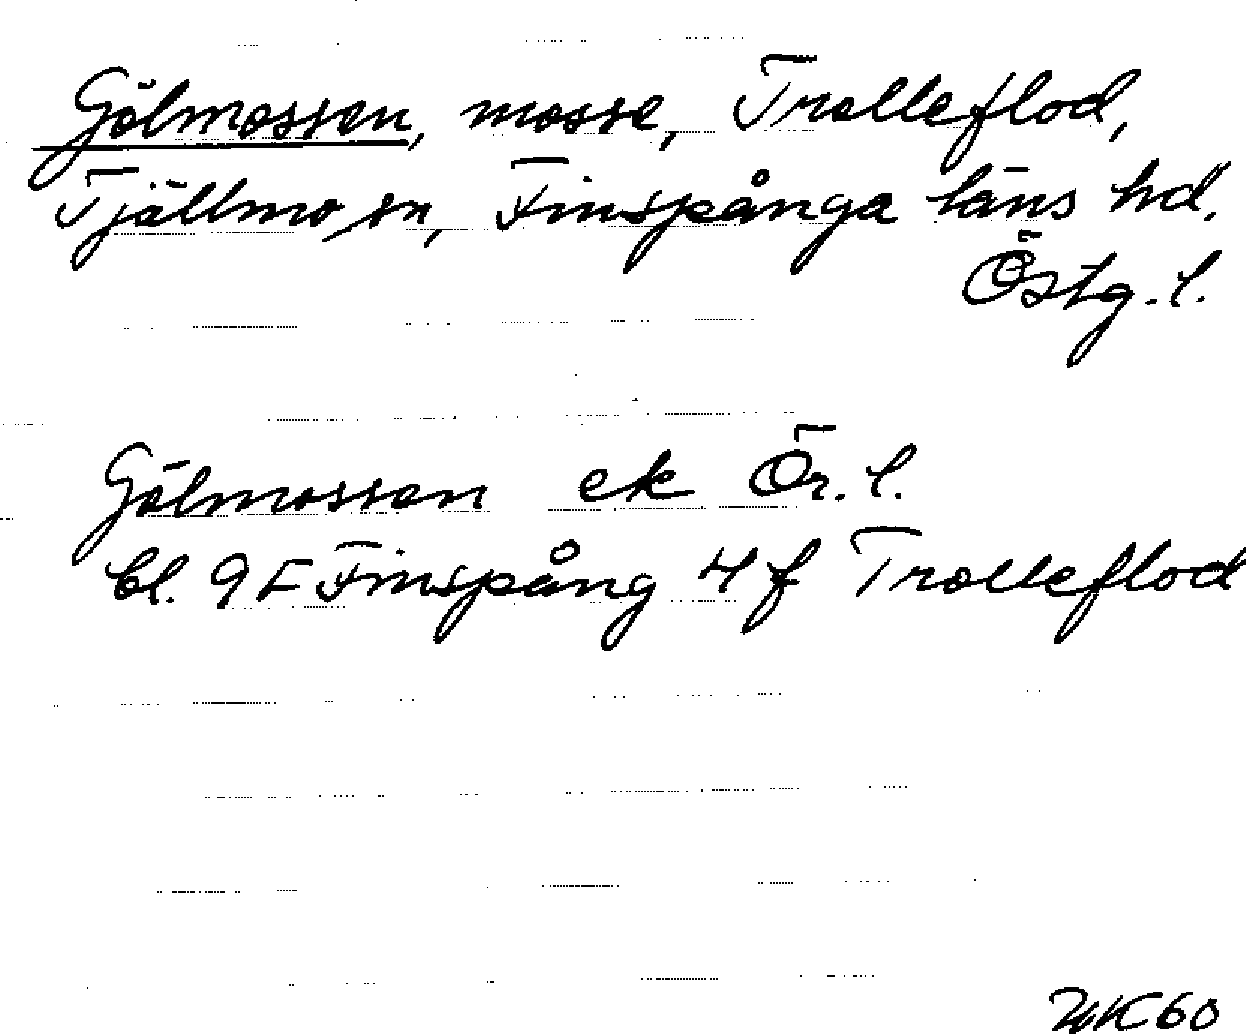 Gölmossen, mosse, Trolleflod,
Tjällmo sn, Finspånga läns hd.
Östg. l.
Gölmossen ek Ör. l.
bl. 9F Finspång 4f Trolleflod